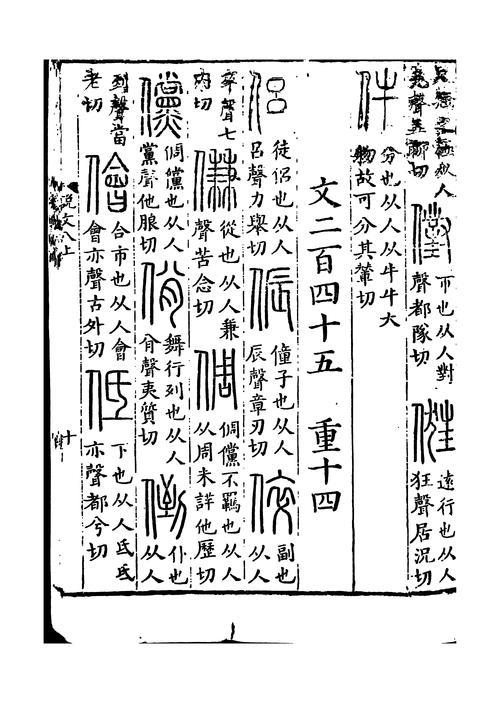 从人堯聲五聊切 㒑 市也从人對聲都隊切 遠行也从人狂聲居況切
件 分也从人从牛牛大物故可分其輦切
文二百四十五 重十四
侶 徒侶也从人呂聲力舉切 侲 僮子也从人辰聲章刃切 倅 副也从人
卒聲七内切 傔 從也从人兼聲苦念切 倜 倜儻不羈也从人从周未詳他歷切
儻 倜儻也从人黨聲他朗切 佾 舞行列也从人㑗聲夷質切 倒 仆也从人
到聲當老切 儈 合市也从人會會亦聲古外切 低 下也从人氐氐亦聲都兮切
説文八上 十